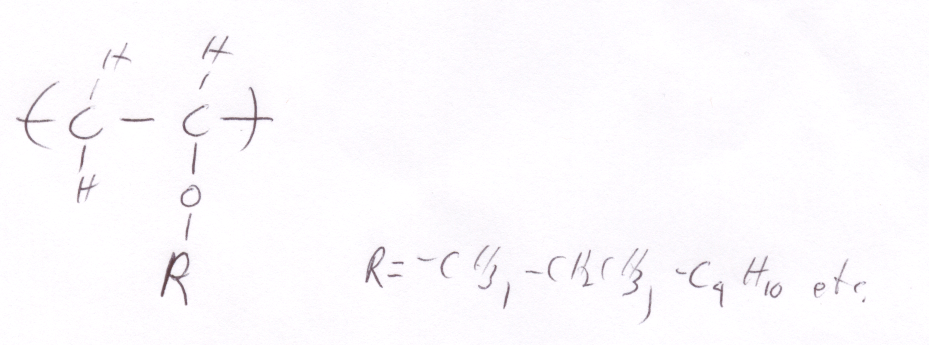 H H
( C – C )
H O
R
R= -CH3, -CH2CH3, -C4H10 etc.